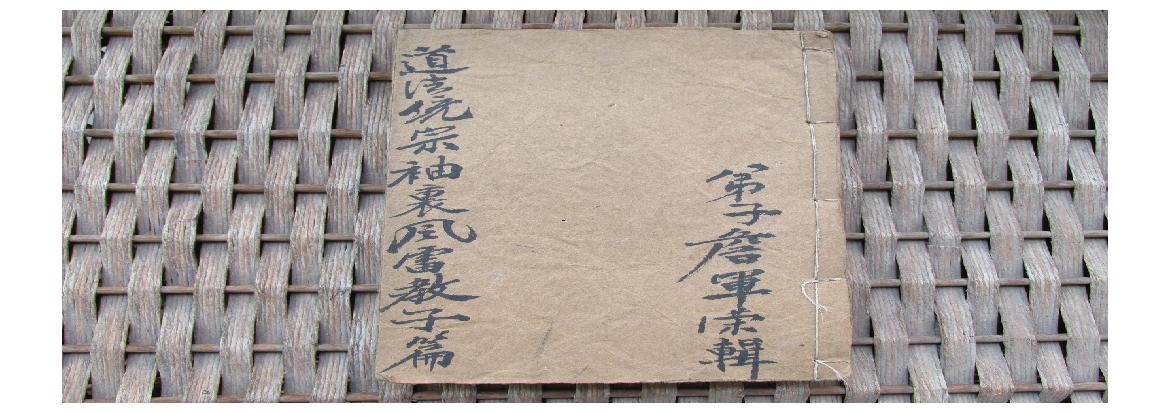 弟子詹軍輯
道法統宗袖裏風雷教子篇